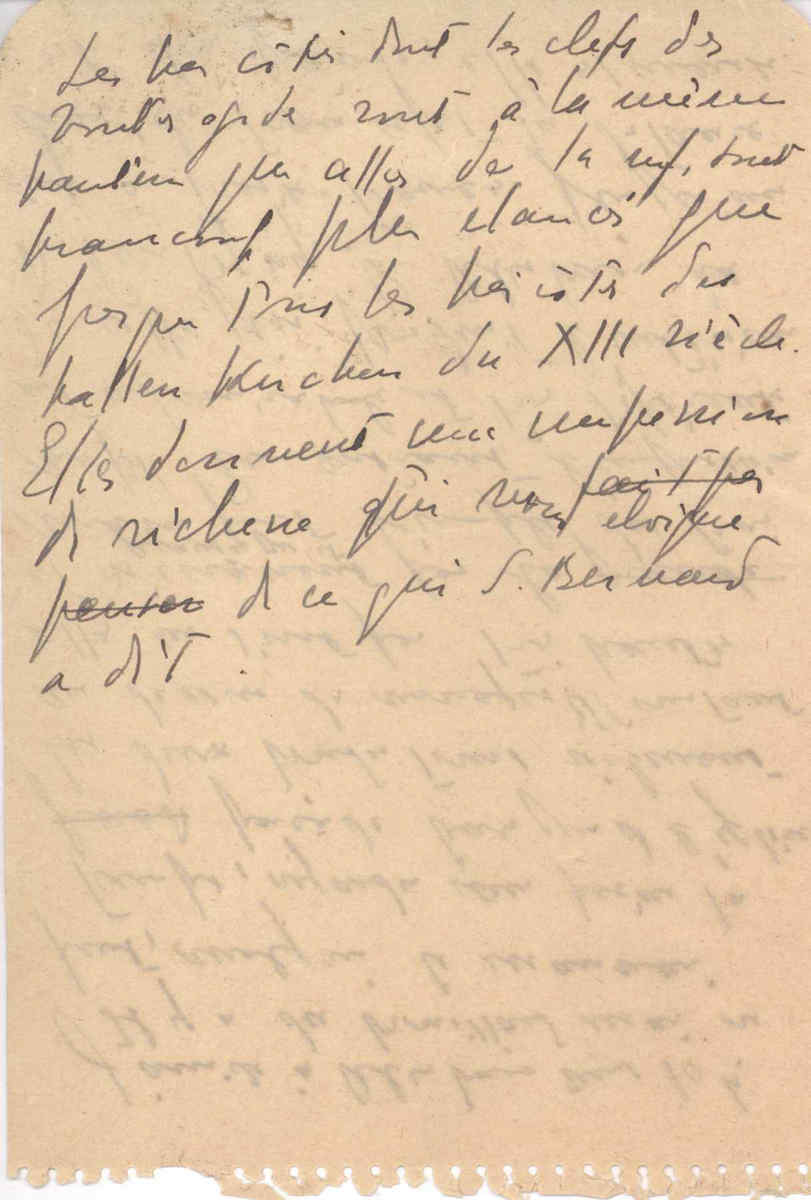 Les bas côtés dont les clefs des
voutes ogivde sont à la même
hauteur que celles de la nef, sont
beaucoup plus elancés que
presque tous les bas côtés des
hallen Kirchen du XIII siècle.
Elles donnent une impression
de richesse qui nous fait pas eloigne
penser de ce que S. Bernard
a dit.